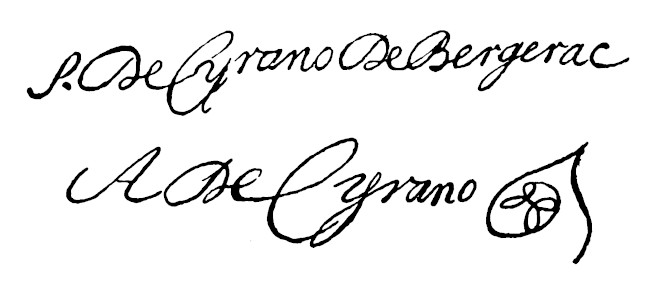 S. De Cyrano De Bergerac
A De Cyrano